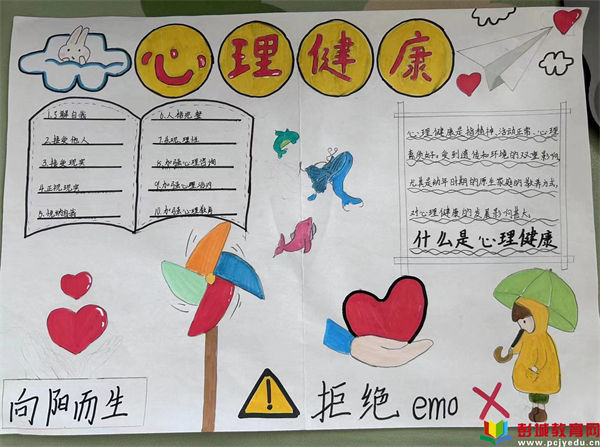 心理健康
1.了解自我
2.接受他人
3.接受现实
4.正视现实
5.悦纳自我
6.人格完整
7.表现理性
8.加强心理咨询
9.加强心理治疗
10.加强心理教育
心理健康是指精神、活动正常、心理
素质好。受到遗传和环境的双重影响,
尤其是幼年时期的原生家庭的教养方式,
对心理健康的发展影响甚大。
什么是心理健康
向阳而生
拒绝 emo
彭城教育网
www.pcjyedu.cn